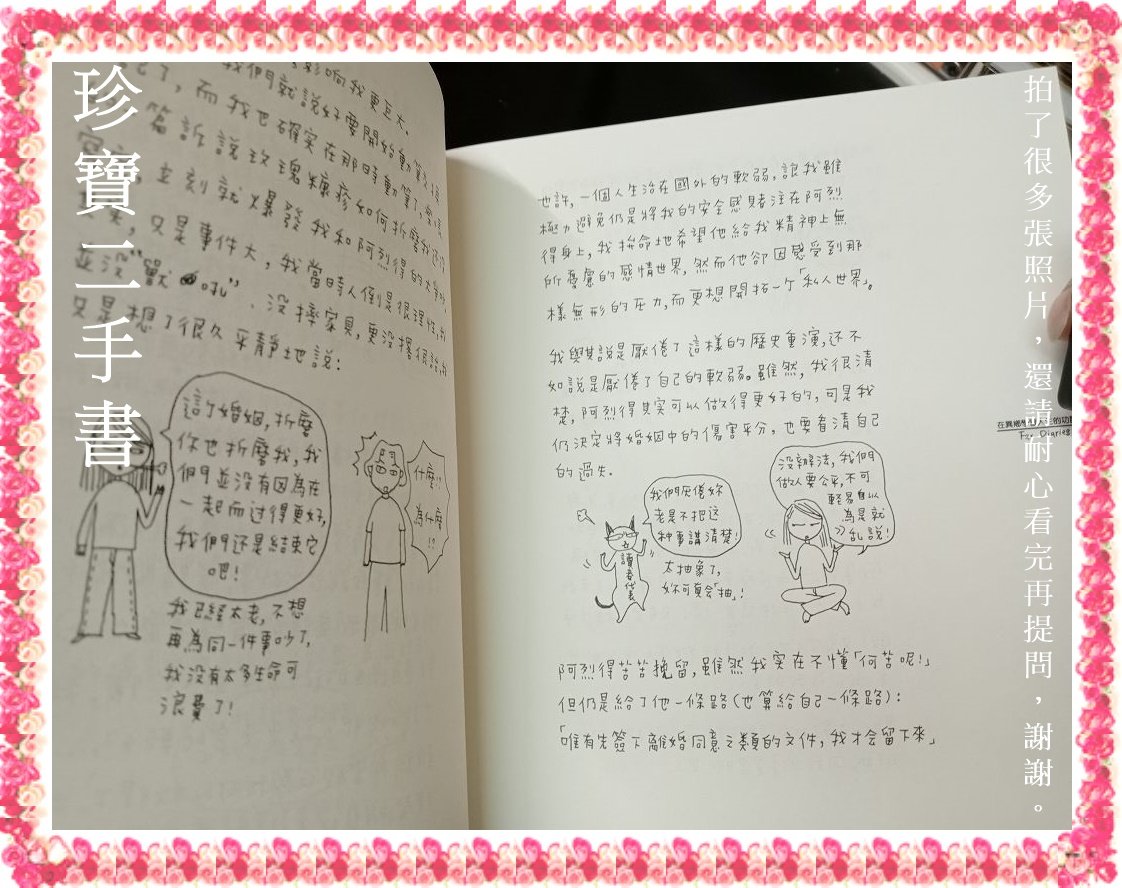 珍寶二手書
影响我更巨大。
我們就說好要開始動筆
了，而我也確實在那時動筆了,
篇訴說玫瑰糠疹如何折磨我
立刻就爆發我和阿烈得的大
又是事件大，我當時人倒是很理性,
並沒"獸 吼"、没摔家具,更没撂很話,
又是想了很久平靜地說：
這个婚姻,折磨
你也折磨我,我
們並没有因為在
一起而过得更好,
我們还是結束它
吧!
什麼!!
為什麼
!?
我已經太老,不想
再為同一件事吵了,
我没有太多生命可
浪費了!
也許,一個人生活在國外的軟弱,讓我雖
極力避免仍是將我的安全感賭注在阿烈
得身上,我拚命地希望他給我精神上無
所憂慮的感情世界,然而他卻因感受到那
樣無形的压力,而更想開拓一个「私人世界」。
我與其說是厭倦了這樣的歷史重演,还不
如說是厭倦了自己的軟弱。雖然,我很清
楚,阿烈得其实可以做得更好的,可是我
仍決定將婚姻中的傷害平分,也要看清自己
的過失.
我們厌倦妳
老是不把这
种事講清楚!
讀者代表
太抽象了,
妳可真会「抽」!
没辦法,我們
做人要公平,不可
輕易自以
為是就
乱說!
阿烈得苦苦挽留,雖然我实在不懂「何苦呢!」
但仍是給了他一條路(也算給自己一條路):
「唯有先簽下離婚同意之類的文件,我才会留下來」
在異鄉
Diaries
拍了很多張照片，還請耐心看完再提問，謝謝。